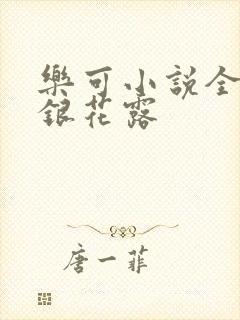 樂可小説全
銀花露
唐一菲